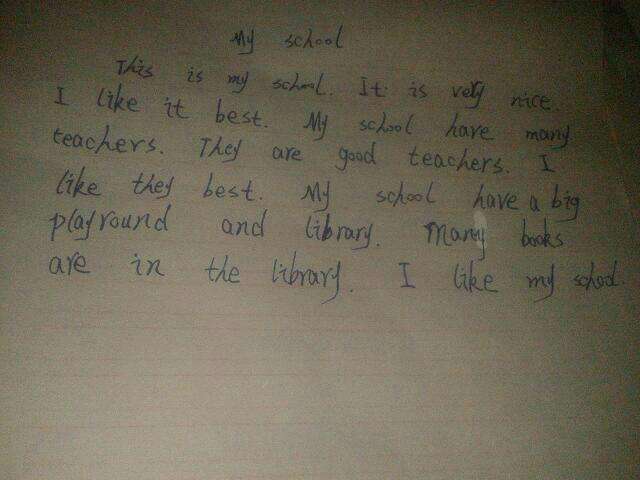 My school
This is my school. It is very nice.
I like it best. My school have many
teachers. They are good teachers. I
like they best. My school have a big
playground and library. Many books
are in the library. I like my school